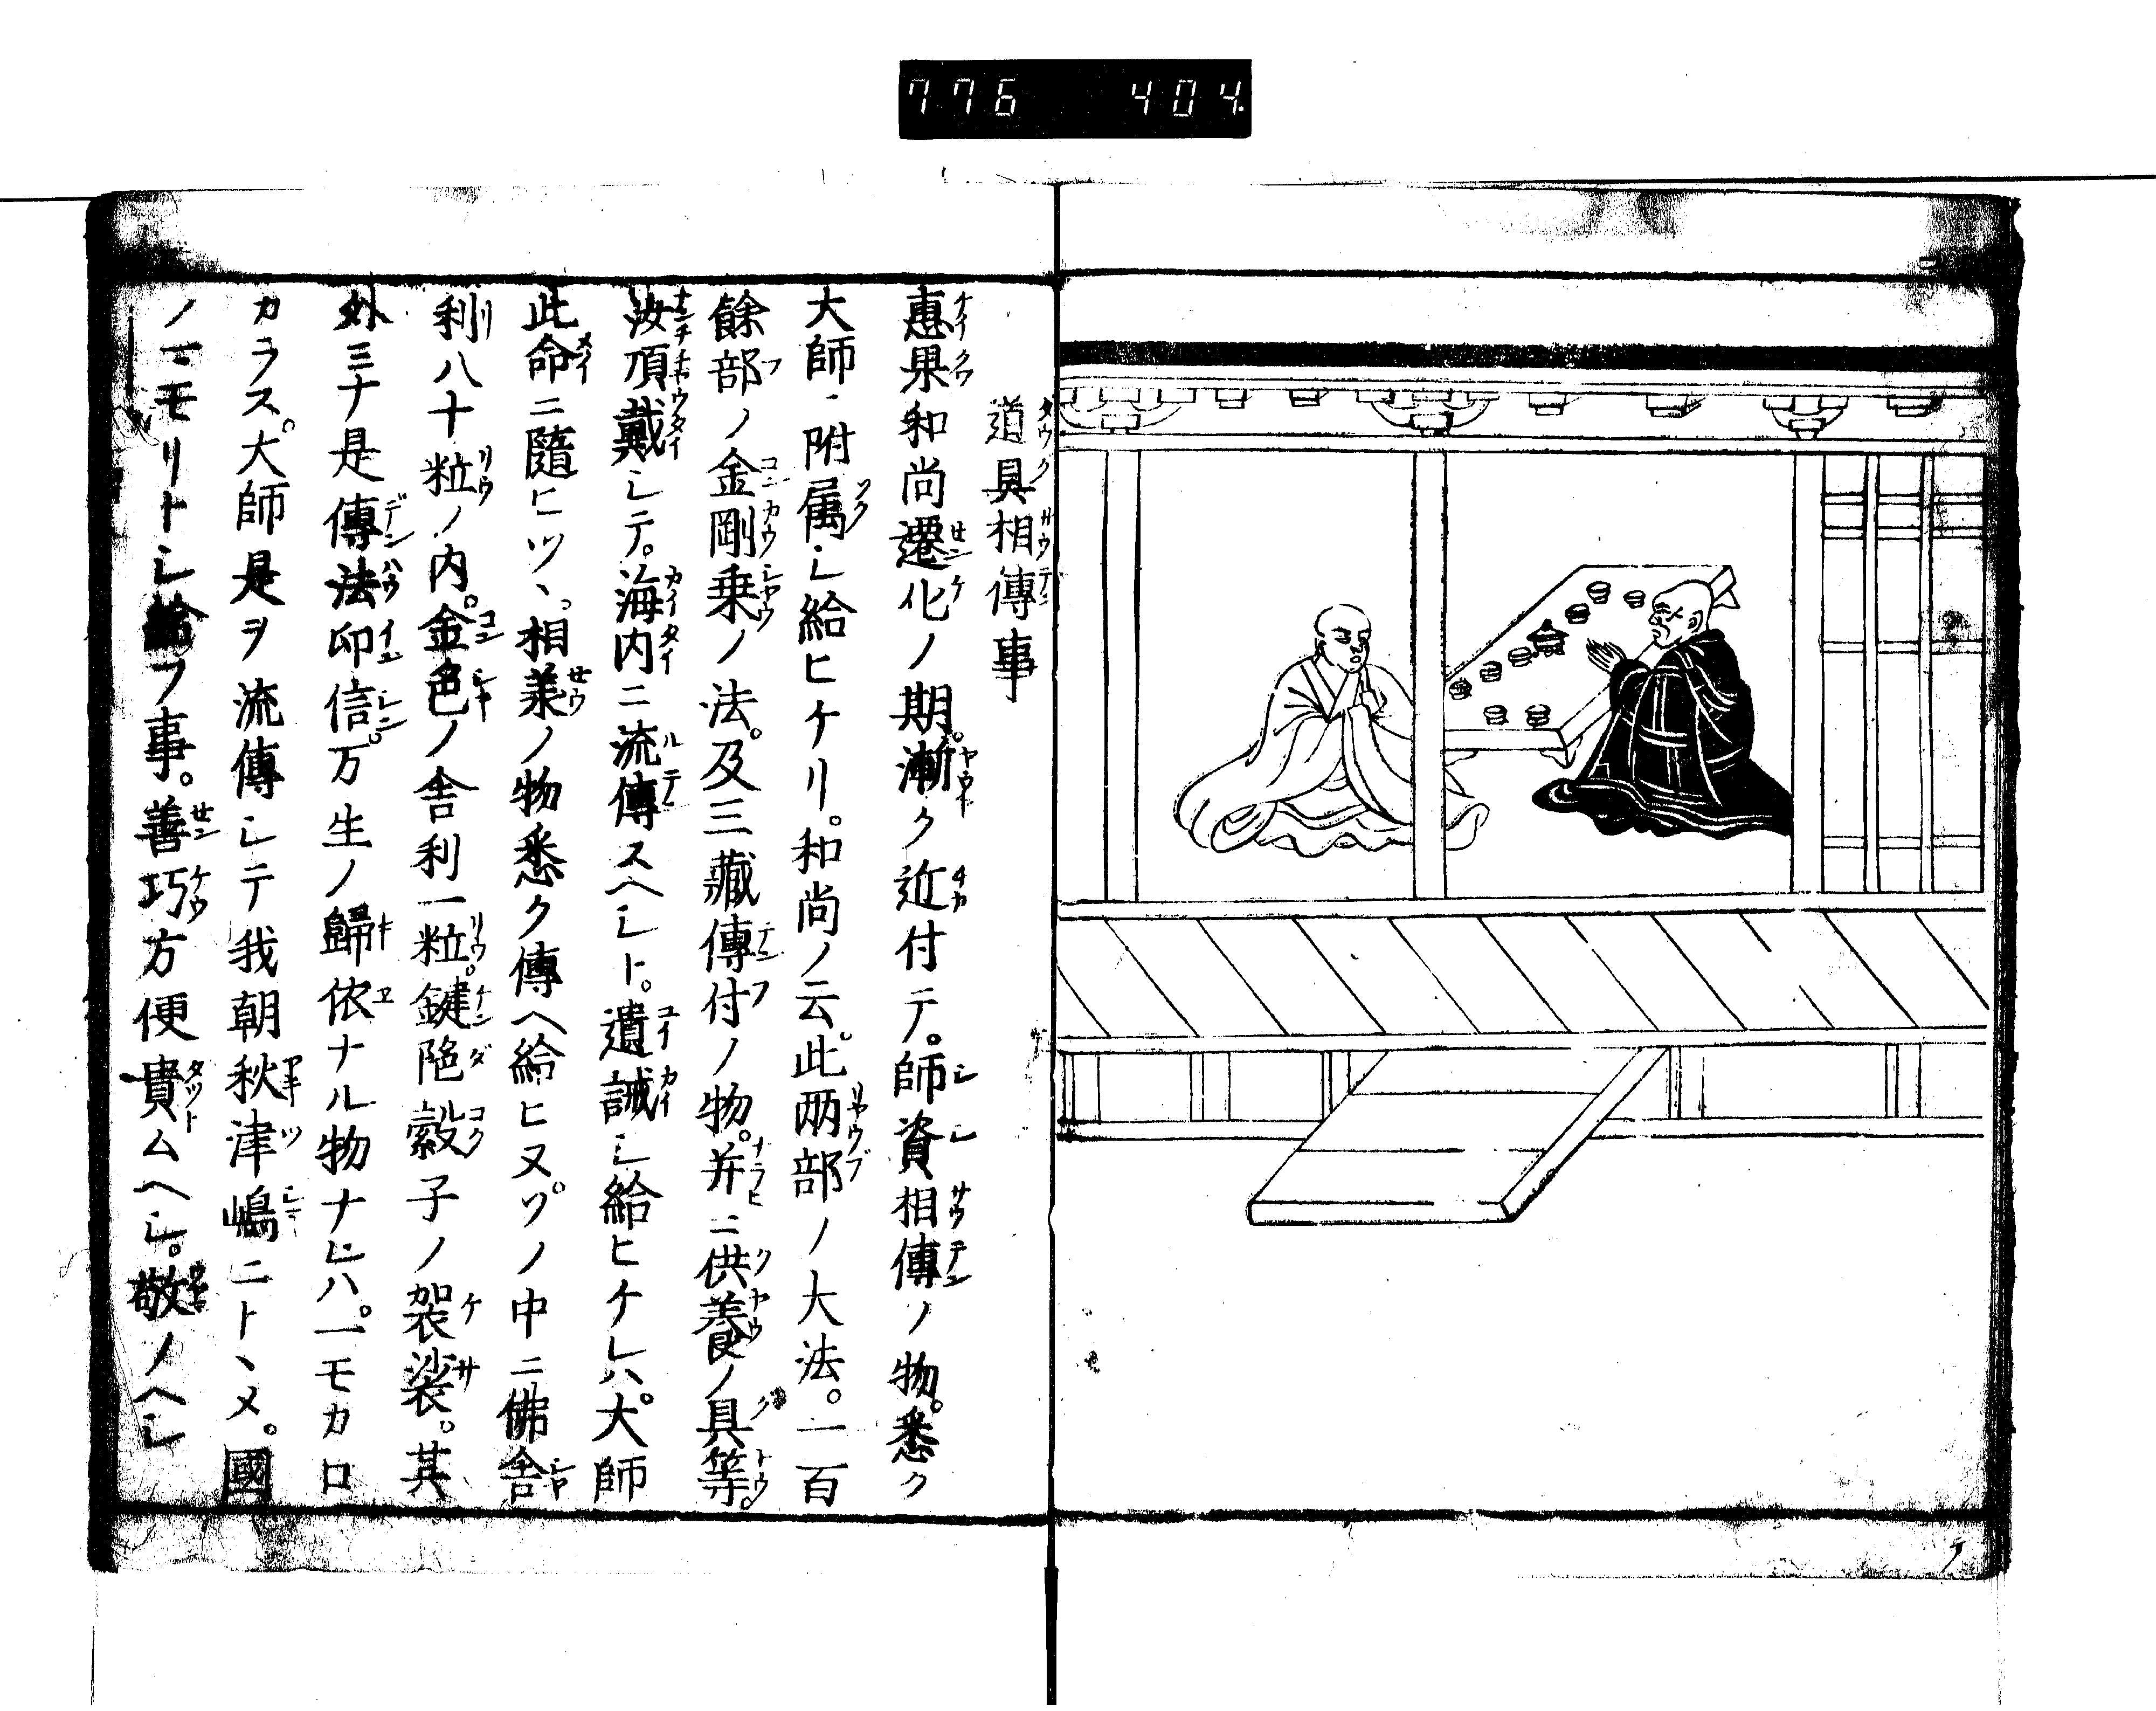 776 404
道具相傳事
惠果和尚遷化ノ期。漸ク近付テ。師資相傳ノ物。悉ク
大師ニ附属シ給ヒケリ。和尚ノ云。此两部ノ大法。一百
餘部ノ金剛乗ノ法。及三藏傳付ノ物。并ニ供養ノ具等。
汝頂戴シテ。海内ニ流傳スヘシト。遺誡シ給ヒケレハ。大師
此命ニ隨ヒツヽ。相羕ノ物悉ク傳ヘ給ヒヌ。ソノ中ニ佛舎
利八十粒ノ内。金色ノ舎利一粒。鍵陁縠子ノ袈裟。其
外三ナ是傳法印信。万生ノ歸依ナル物ナレハ。一モカロ
カラス。大師是ヲ流傳シテ我朝秋津嶋ニトヽメ。國
ノマモリトシ給フ事。善巧方便貴ムヘシ。敬ノヘシ